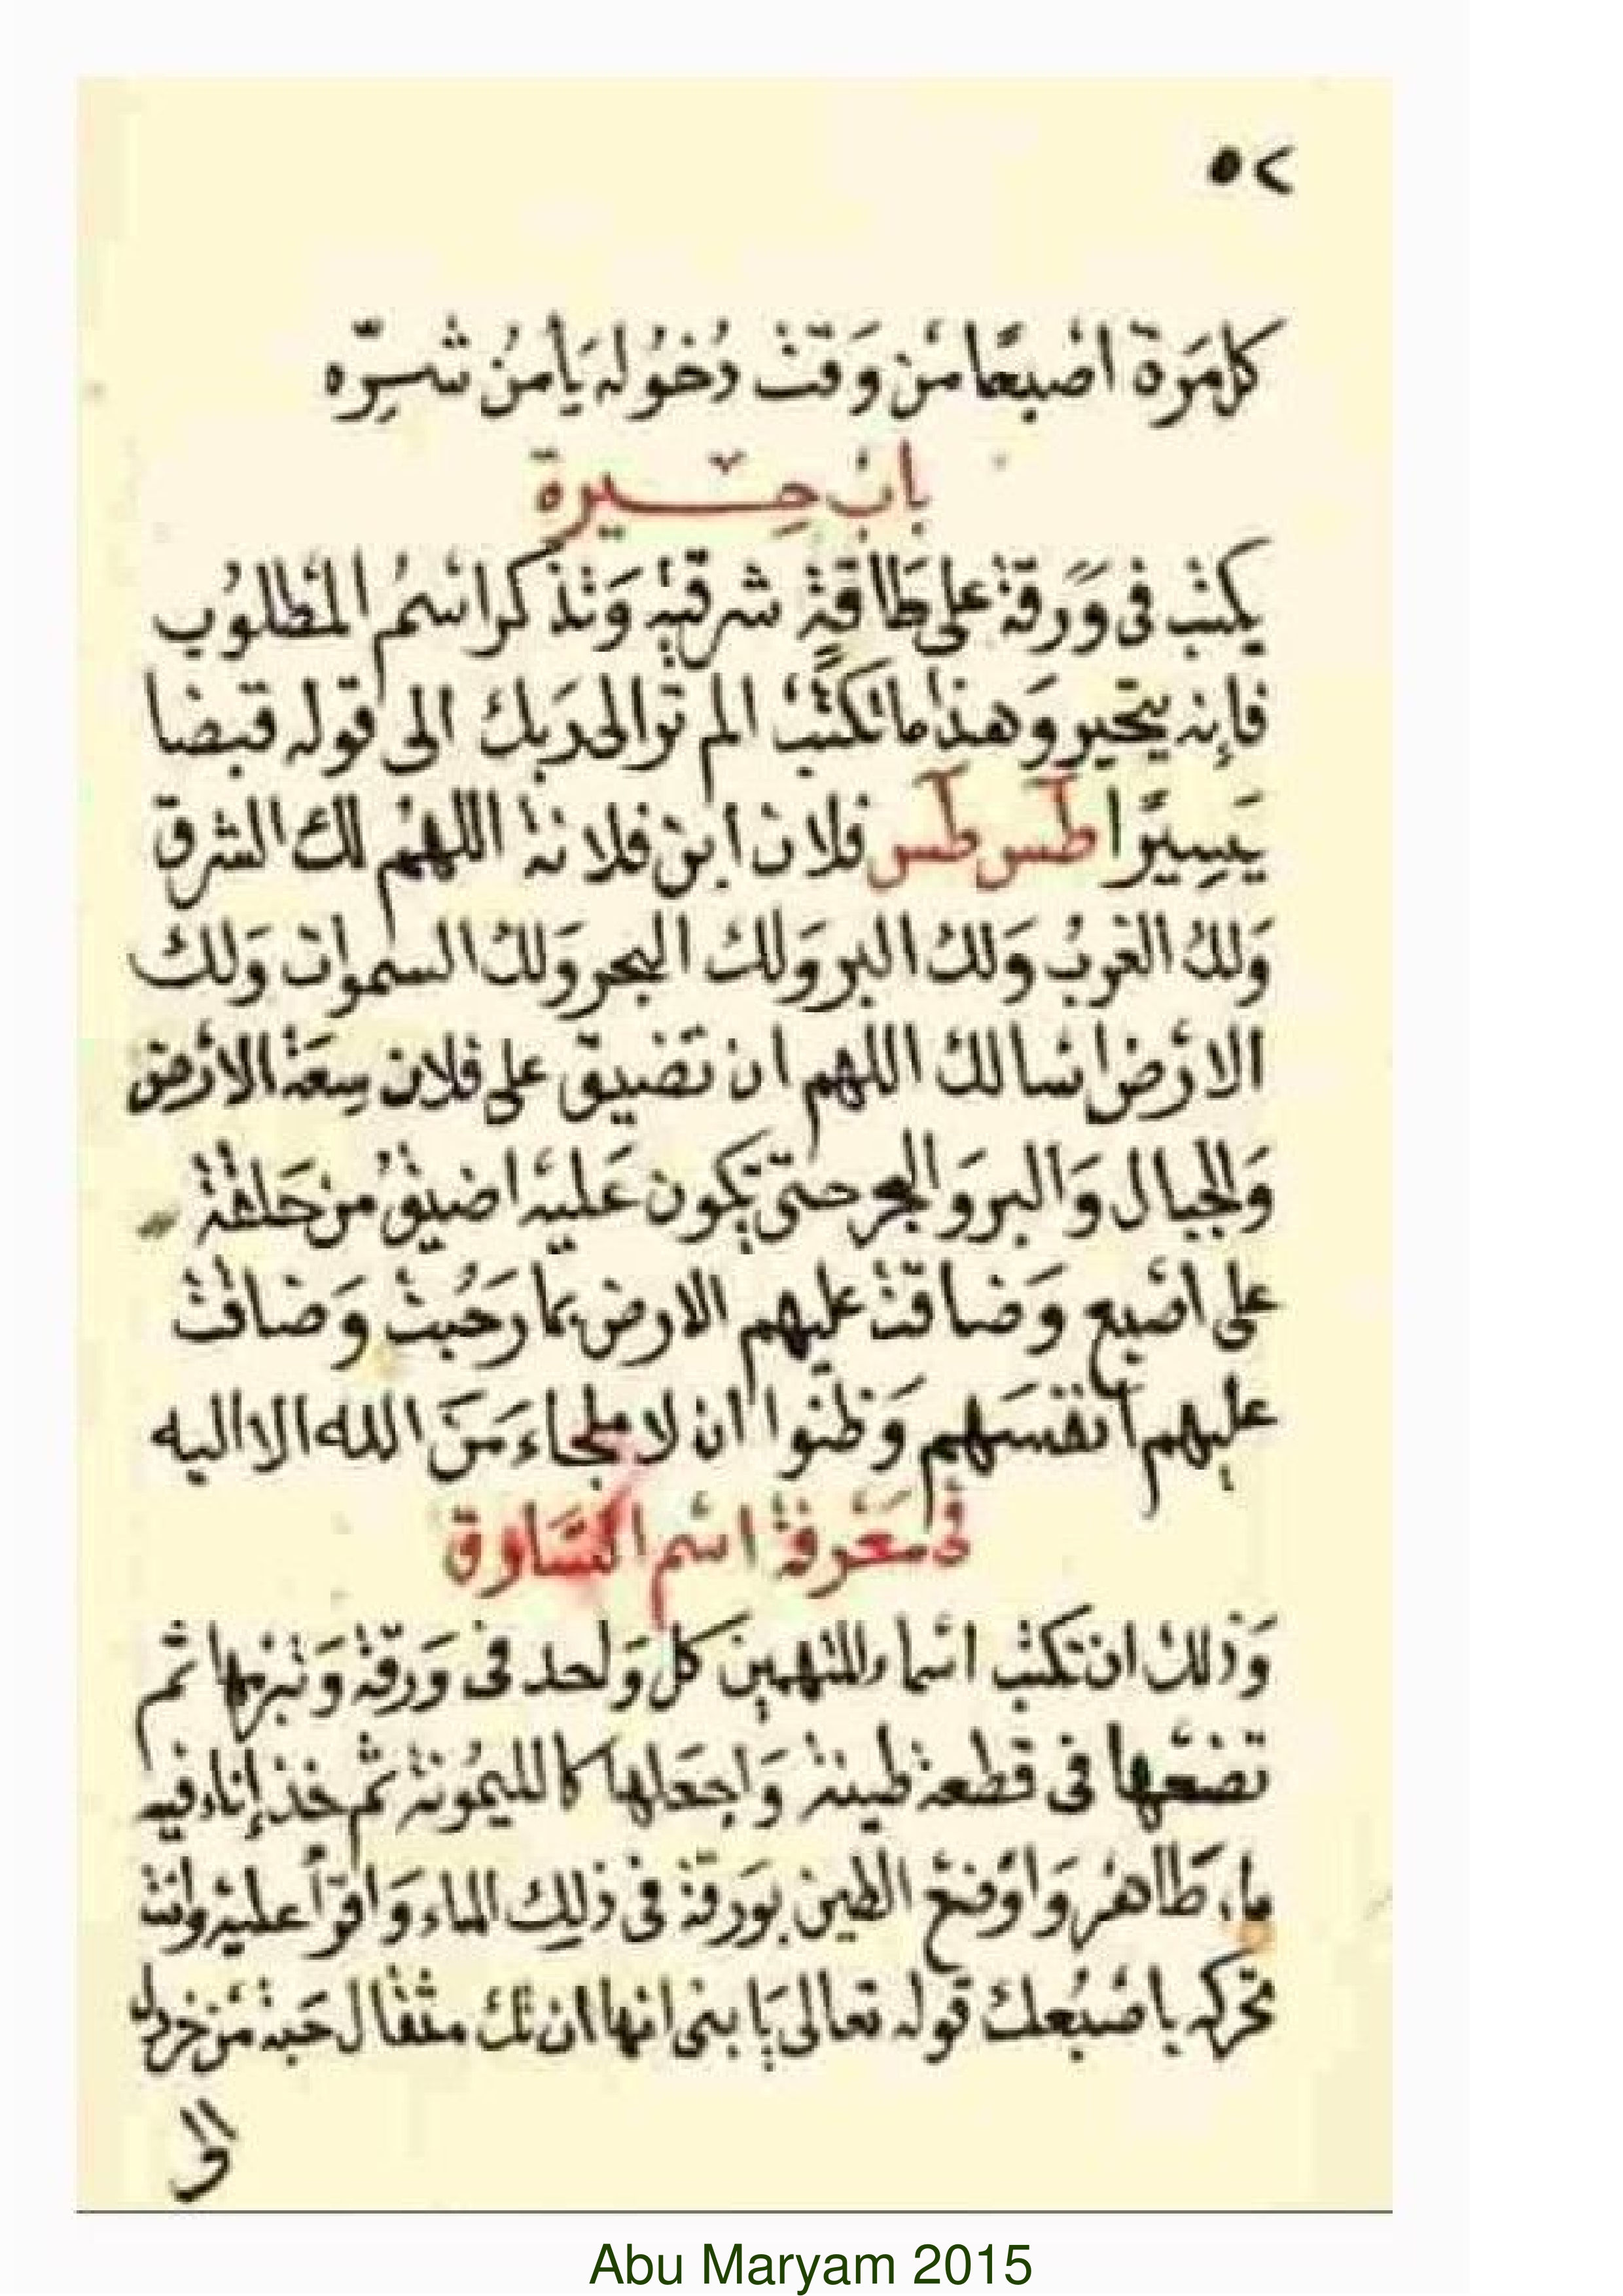 ٥٢
كل مرة اصبعا من وقت دخوله يأمن شره
باب حيرة
يكتب فى ورقة على طاقة شرقية وتذكر اسم المطلوب
فإنه يتحير وهذا ما تكتب الم تر الى ربك الى قوله قبضا
يسيرا طس طس فلان ابن فلانة اللهم لك الشرق
ولك الغرب ولك البر ولك البحر ولك السموات ولك
الارض اسالك اللهم ان تضيق على فلان سعة الأرض
والجبال والبر والبحر حتى يكون عليه اضيق من حلقة
على اصبع وضاقت عليهم الارض بما رحبت وضاقت
عليهم انفسهم وظنوا ان لا ملجاء من الله الا اليه
فى معرفة اسم السارق
وذلك ان تكتب اسماء المتهمين كل واحد فى ورقة وتبرمها ثم
تضعها فى قطعة طينة واجعلها كالليمونة ثم خذ إناء فيه
ماء طاهر واوضع الطين بورقة فى ذلك الماء واقرأ عليه وانت
تحركه باصبعك قوله تعالى يا بنى انها ان تك مثقال حبة من خردل
الى
Abu Maryam 2015